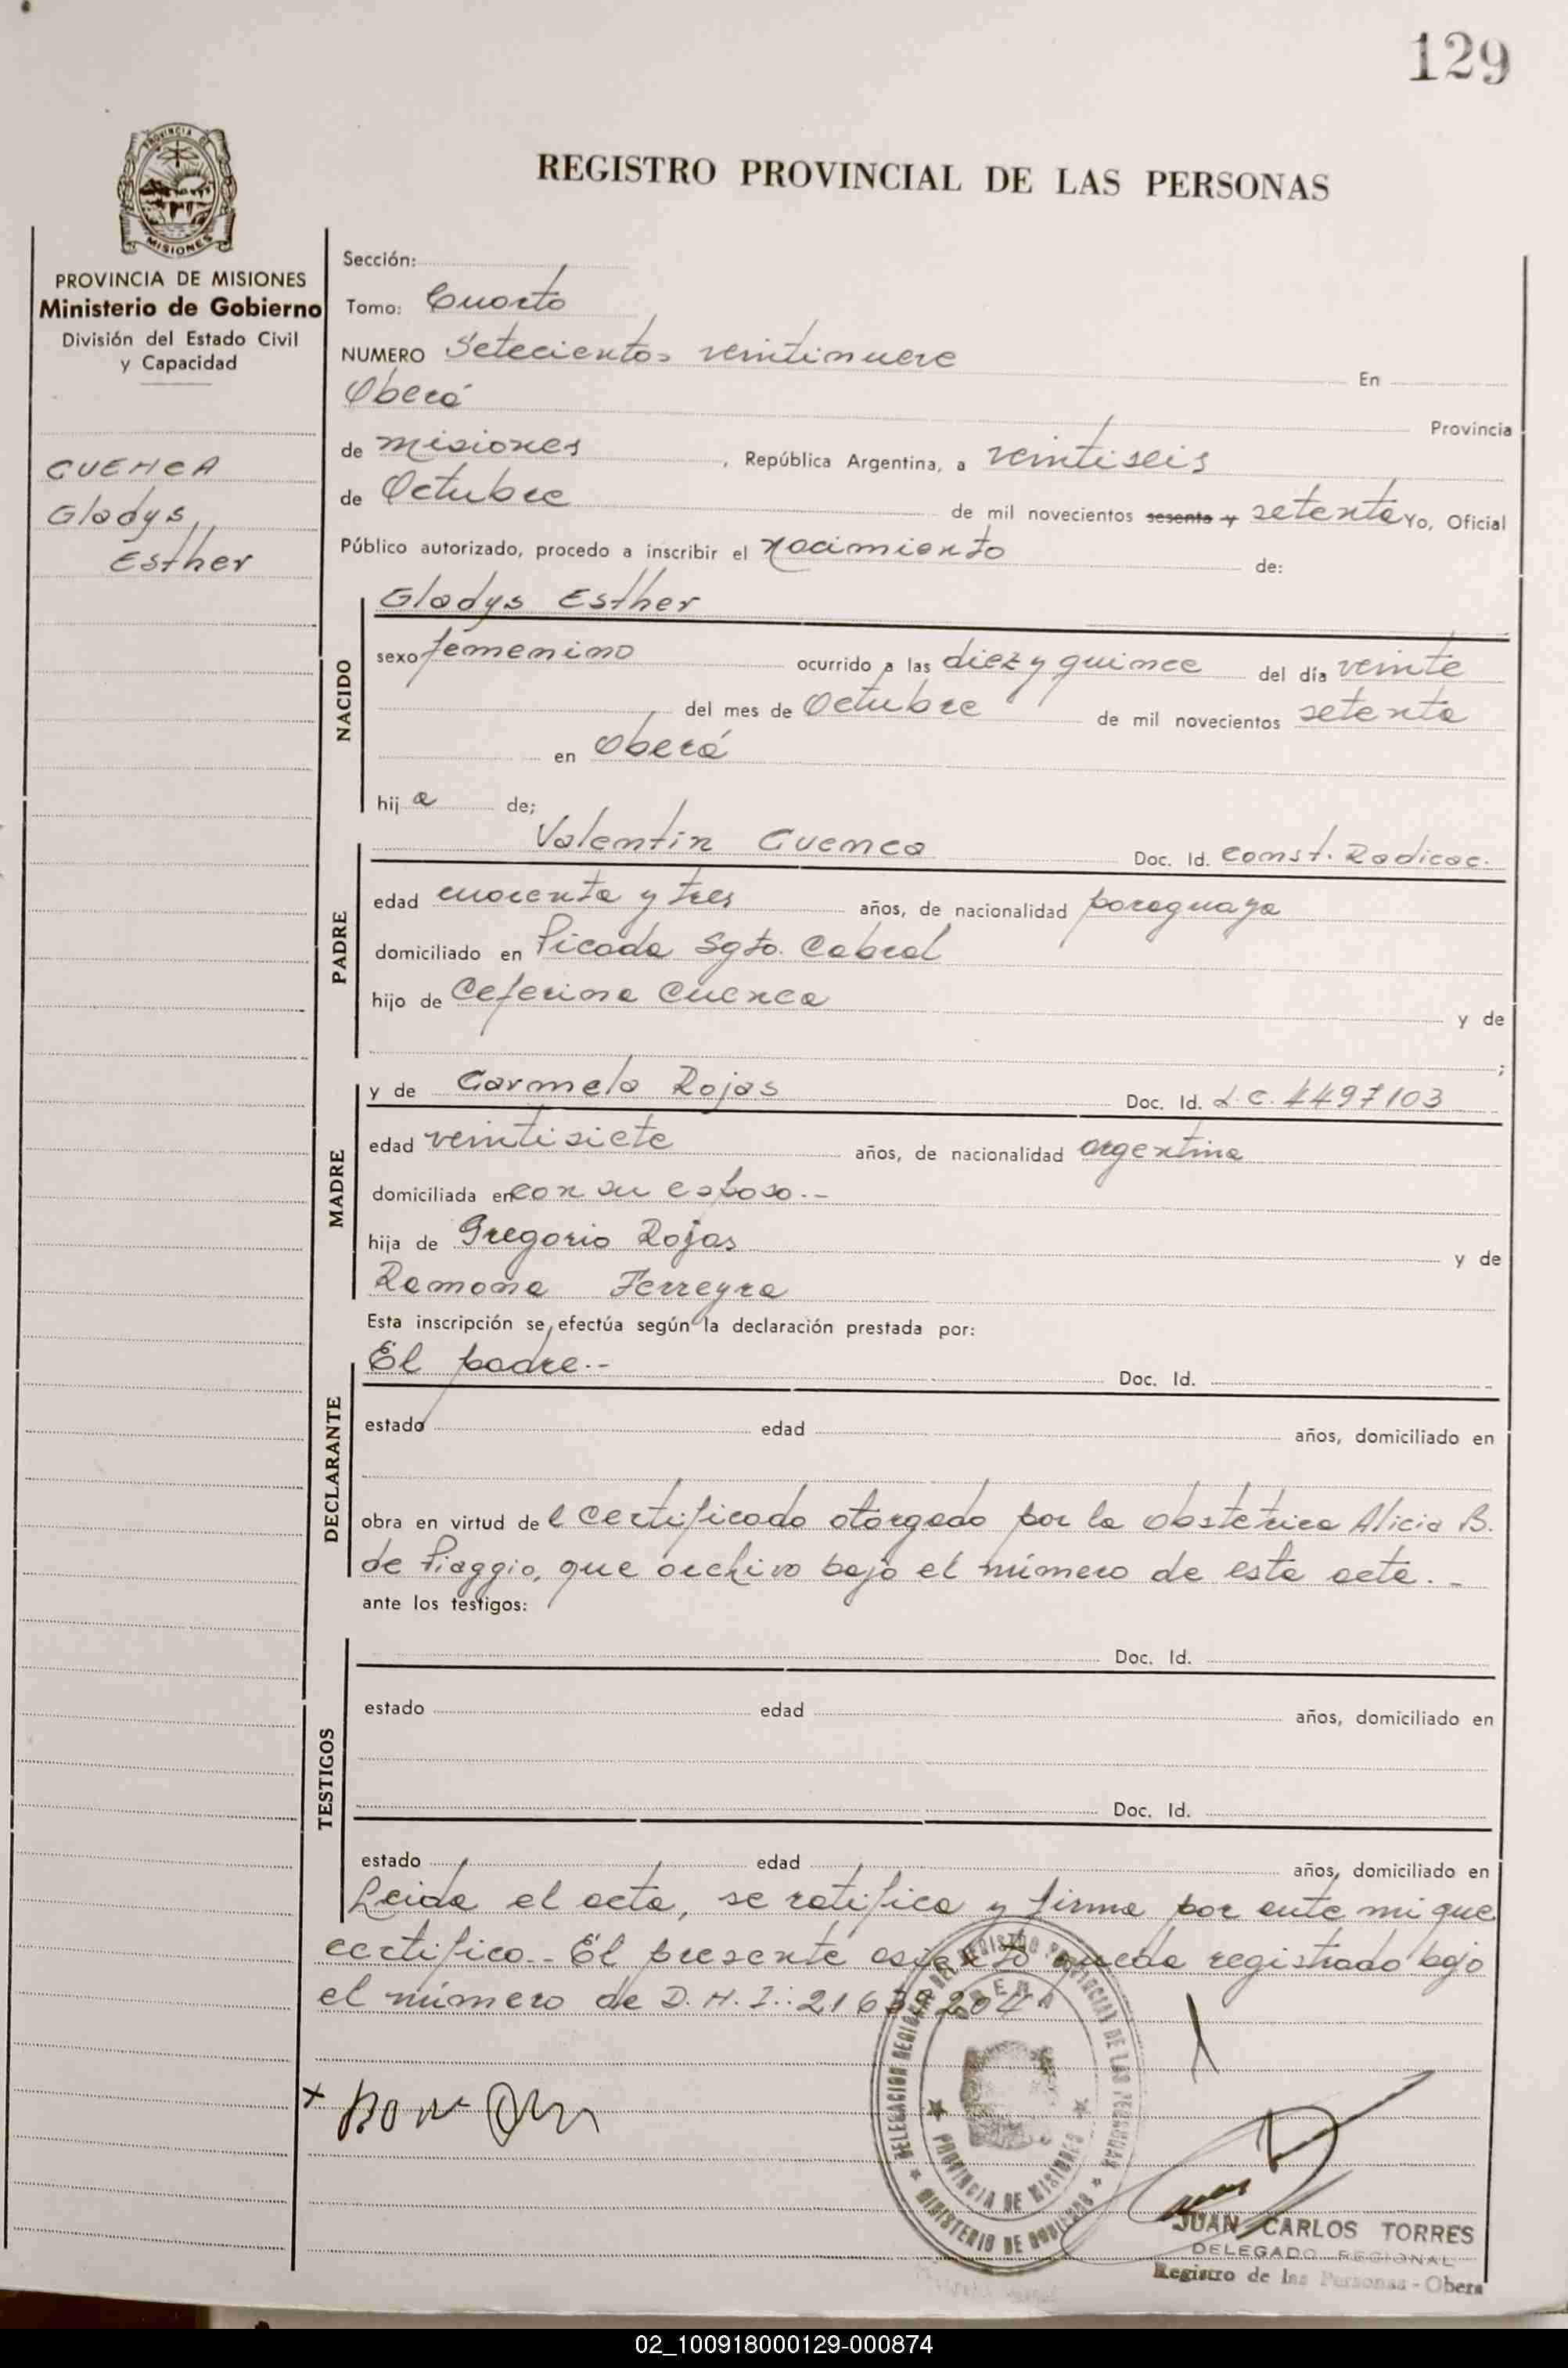 129
PROVINCIA DE
MISIONES
REGISTRO PROVINCIAL DE LAS PERSONAS
PROVINCIA DE MISIONES
Ministerio de Gobierno
División del Estado Civil
y Capacidad
CUENCA
Gladys,
Esther
Sección:
Tomo: Cuarto
NUMERO Setecientos veintinueve En
Oberá Provincia
de misiones, República Argentina, a veintiseis
de Octubre de mil novecientos sesenta y setenta Yo, Oficial
Público autorizado, procedo a inscribir el nacimiento de:
NACIDO
Gladys Esther
sexo femenino ocurrido a las diez y quince del día veinte
del mes de Octubre de mil novecientos setenta
en Oberá
hij a de;
PADRE
Valentín Cuenca Doc. Id. Const. Radicac.
edad cuarenta y tres años, de nacionalidad paraguaya
domiciliado en Picada Sgto. Cabral
hijo de Ceferina Cuenca y de
;
MADRE
y de Carmela Rojas Doc. Id. L.C. 4497103
edad veintisiete años, de nacionalidad argentina
domiciliada en con su esposo.--
hija de Gregorio Rojas y de
Ramona Ferreyra
Esta inscripción se efectúa según la declaración prestada por:
DECLARANTE
El padre.-- Doc. Id.
estado edad años, domiciliado en
obra en virtud de l certificado otorgado por la obstetrica Alicia B.
de Piaggio, que archivo bajo el número de esta acta.-
ante los testigos:
TESTIGOS
Doc. Id.
estado edad años, domiciliado en
Doc. Id.
estado edad años, domiciliado en
Leida el acta, se ratifica y firma por ante mi que
certifico.- El presente asiento queda registrado bajo
el número de D.N.I.: 204
DELEGACION REGIONAL DEL REGISTRO PROVINCIAL DE LAS PERSONAS
OBERA
PROVINCIA DE MISIONES
MINISTERIO DE GOBIERNO
JUAN CARLOS TORRES
DELEGADO REGIONAL
Registro de las Personas - Obera
02_100918000129-000874